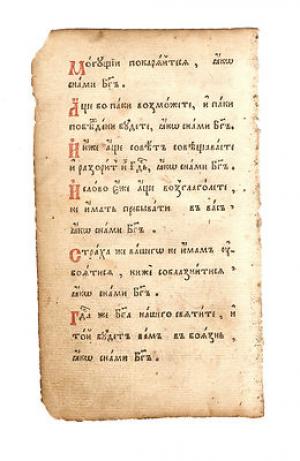 Могущїи покаряйтеся , ꙗкѡ
снами Бг҃ъ .
Аще бо паки возможете , и паки
побѣждени будете , ꙗкѡ снами Бг҃ъ .
Иже аще совѣтъ совѣщаваете
и разоритъ и Гд҇ь , ꙗкѡ снами Бг҃ъ .
И слово еже аще возглаголете ,
не имать пребывати въ васъ ,
ꙗкѡ снами Бг҃ъ .
Страха же вашегѡ не имамъ ѹ-
боятися , ниже соблазнитися
ꙗкѡ снами Бг҃ъ .
Гд҇а же Бг҃а нашего святите , и
той будетъ вамъ въ боязнь ,
ꙗкѡ снами Бг҃ъ .